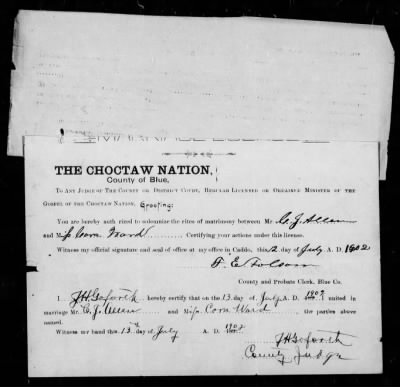 THE CHOCTAW NATION,
County of Blue,
TO ANY JUDGE OF THE COUNTY OR DISTRICT COURT, REGULAR LICENSED OR ORDAINED MINISTER OF THE
GOSPEL OF THE CHOCTAW NATION, Greeting:
You are hereby auth rized to solemnize the rites of matrimony between Mr C. J. Allen
and Miss Cora Ward Certifying your actions under this license.
Witness my official signature and seal of office at my office in Caddo, this 12 day of July A. D. 1902
T. E. Folsom
County and Probate Clerk, Blue Co.
I J H Goforth hereby certify that on the 13 day of July A. D. 1902 united in
marriage Mr C. J. Allen and Miss Cora Ward the parties above
named.
Witness my hand this 13th day of July A D. 1902
J H Goforth
County Judge